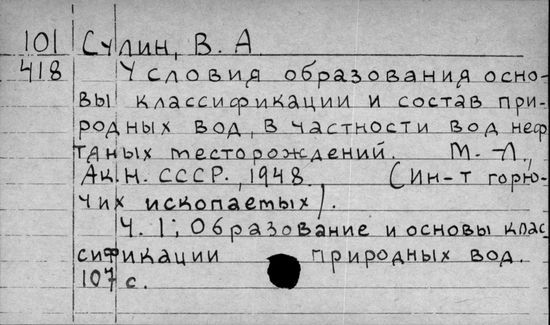 101 Сулин, В. А
418 Условия образования осно-
вы классификации и состав при-
родных вод, в частности вод неф
тяных месторождений. М.-Л.,
Ак. Н. СССР., 1948. (Ин-т горю-
чих ископаемых).
Ч. 1; Образование и основы клас
сификации природных вод.
107 с.